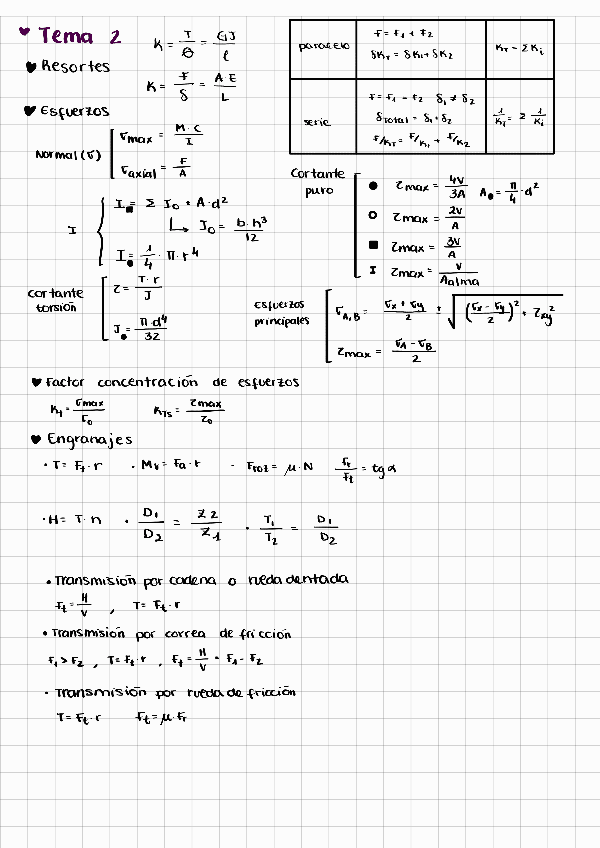 ♥ Tema 2
K = T/θ = GJ/l
♥ Resortes
K = F/δ = A·E/L
paralelo
F = F1 + F2
δKT = δK1 + δK2
KT = ΣKi
serie
F = F1 = F2 δ1 ≠ δ2
δTotal = δ1 + δ2
F/KT = F/K1 + F/K2
1/KT = Σ 1/Ki
♥ Esfuerzos
Normal (σ)
σmax = M·C/I
σaxial = F/A
I
I■ = Σ I0 + A·d²
↳ I0 = b·h³/12
I● = 1/4 · π·r⁴
Cortante puro
● τmax = 4V/3A A● = π/4 · d²
○ τmax = 2V/A
■ τmax = 3V/A
I τmax = V/Aalma
cortante torsión
τ = T·r/J
J● = π·d⁴/32
esfuerzos principales
σA,B = (σx + σy)/2 ± √(((σx - σy)/2)² + τxy²)
τmax = (σA - σB)/2
♥ Factor concentración de esfuerzos
Kt = σmax/σ0 KTS = τmax/τ0
♥ Engranajes
· T = Ft · r · Mv = Fa · r · Froz = μ · N Fr/Ft = tg α
· H = T · n · D1/D2 = Z2/Z1 · T1/T2 = D1/D2
• Transmisión por cadena o rueda dentada
Ft = H/V , T = Ft · r
• Transmisión por correa de fricción
F1 > F2 , T = Ft · r , Ft = H/V = F1 - F2
· Transmisión por rueda de fricción
T = Ft · r Ft = μ · Fr